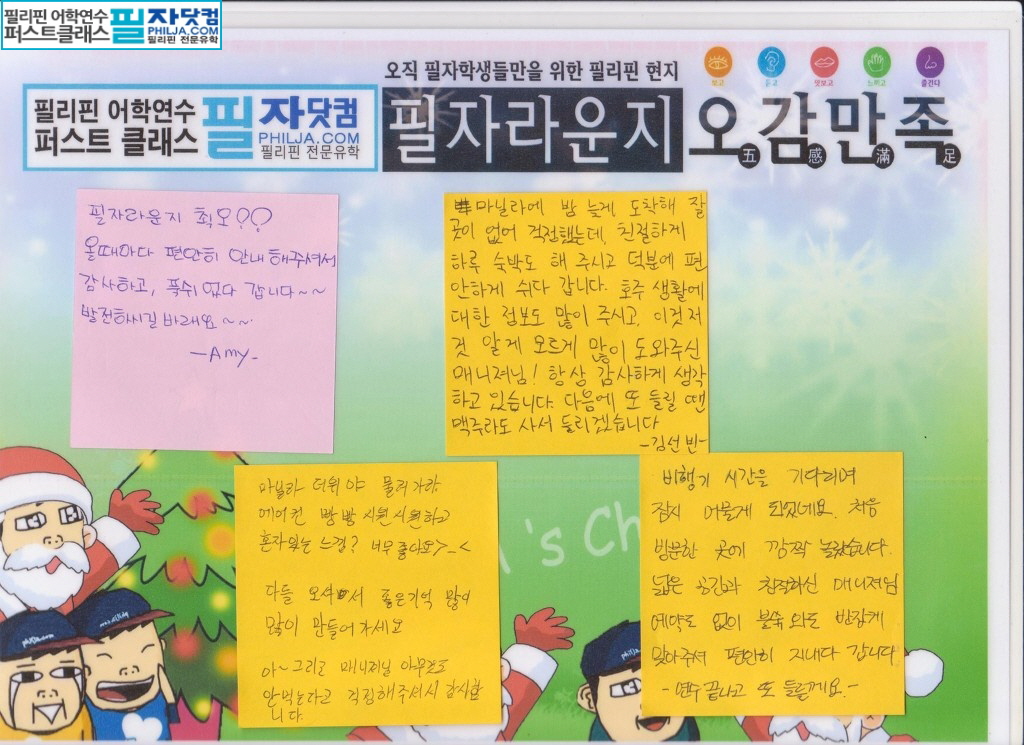 필리핀 어학연수
퍼스트클래스
필자닷컴
PHILJA.COM
필리핀 전문유학
오직 필자학생들만을 위한 필리핀 현지
보고
듣고
맛보고
느끼고
즐긴다
필리핀 어학연수
퍼스트 클래스
필자닷컴
PHILJA.COM
필리핀 전문유학
필자라운지 오감만족
五 感 滿 足
필자라운지 최고!!
올때마다 편안히 안내해주셔서
감사하고, 푹쉬었다 갑니다~~
발전하시길 바래요~~
-Amy-
마닐라에 밤 늦게 도착해 잘
곳이 없어 걱정했는데, 친절하게
하루 숙박도 해 주시고 덕분에 편
안하게 쉬다 갑니다. 호주 생활에
대한 정보도 많이 주시고, 이것저
것 알게 모르게 많이 도와주신
매니져님! 항상 감사하게 생각
하고 있습니다. 다음에 또 들릴 땐
맥주라도 사서 들리겠습니다
-김선빈-
마닐라 더위야 물러가라
에어컨 빵빵 시원시원하고
혼자있는 느낌? 너무좋아요>_<
다들 오셔서 좋은기억 많이
많이 만들어가세요
아~ 그리고 매니저님 아무것도
안먹는다고 걱정해주셔서 감사합
니다.
비행기 시간을 기다리며
잠시 머물게 되었네요. 처음
방문한 곳에 깜짝 놀랐습니다.
넓은 공간과 친절하신 매니져님
예약도 없이 불쑥 와도 반갑게
맞아주셔 편안히 지내다 갑니다
-연수 끝나고 또 들를게요.-
's Ch
philja.com